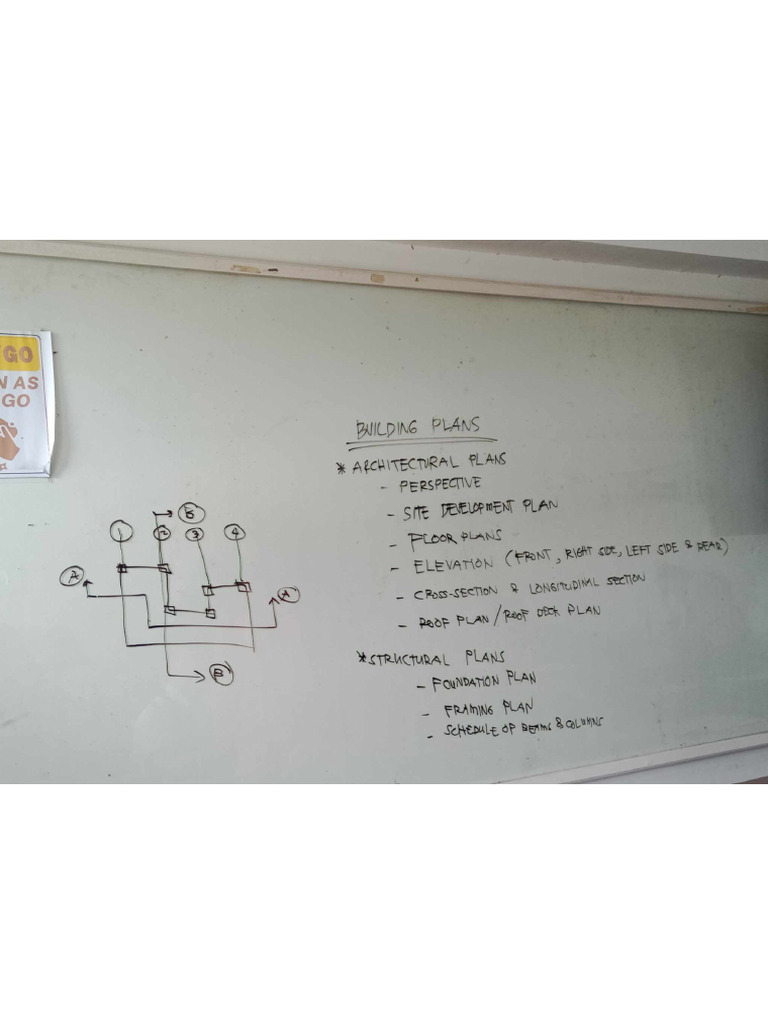 GO
N AS
GO
BUILDING PLANS
* ARCHITECTURAL PLANS
- PERSPECTIVE
- SITE DEVELOPMENT PLAN
- FLOOR PLANS
- ELEVATION (FRONT, RIGHT SIDE, LEFT SIDE & REAR)
- CROSS-SECTION & LONGITUDINAL SECTION
- ROOF PLAN / ROOF DECK PLAN
* STRUCTURAL PLANS
- FOUNDATION PLAN
- FRAMING PLAN
- SCHEDULE OF BEAMS & COLUMNS
B
1 2 3 4
A
A'
B'